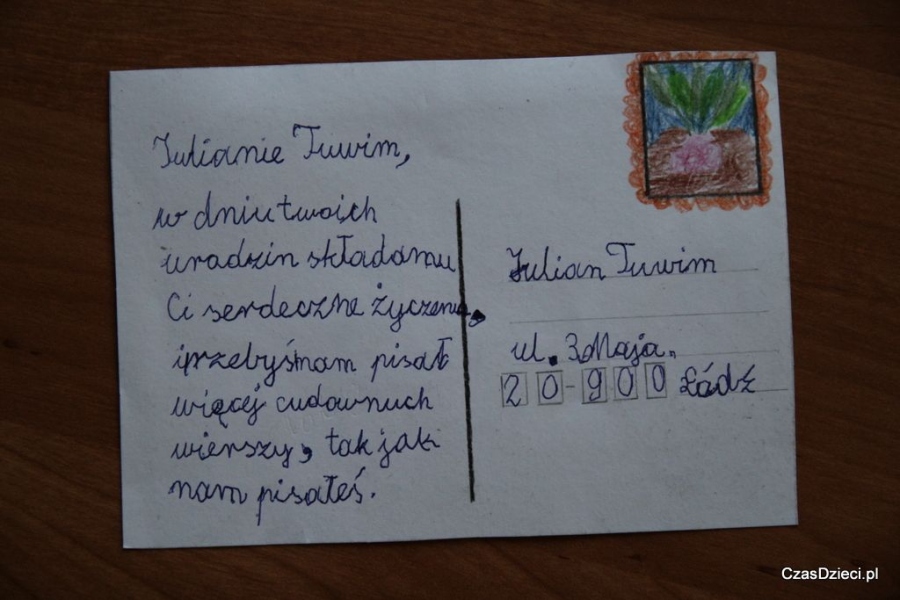 Julianie Tuwim,
w dniu twoich
urodzin składamy
Ci serdeczne życzenia,
i przebyś nam pisał
więcej cudownych
wierszy, tak jak
nam pisałeś.
Julian Tuwim
ul. 3 Maja.
20-900 Łódź
CzasDzieci.pl